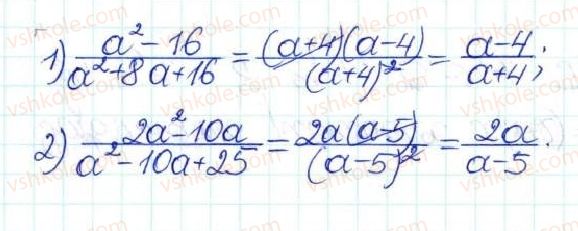 1) (a² - 16)/(a² + 8a + 16) = ((a+4)(a-4))/((a+4)²) = (a-4)/(a+4);
2) (2a² - 10a)/(a² - 10a + 25) = (2a(a-5))/((a-5)²) = (2a)/(a-5).